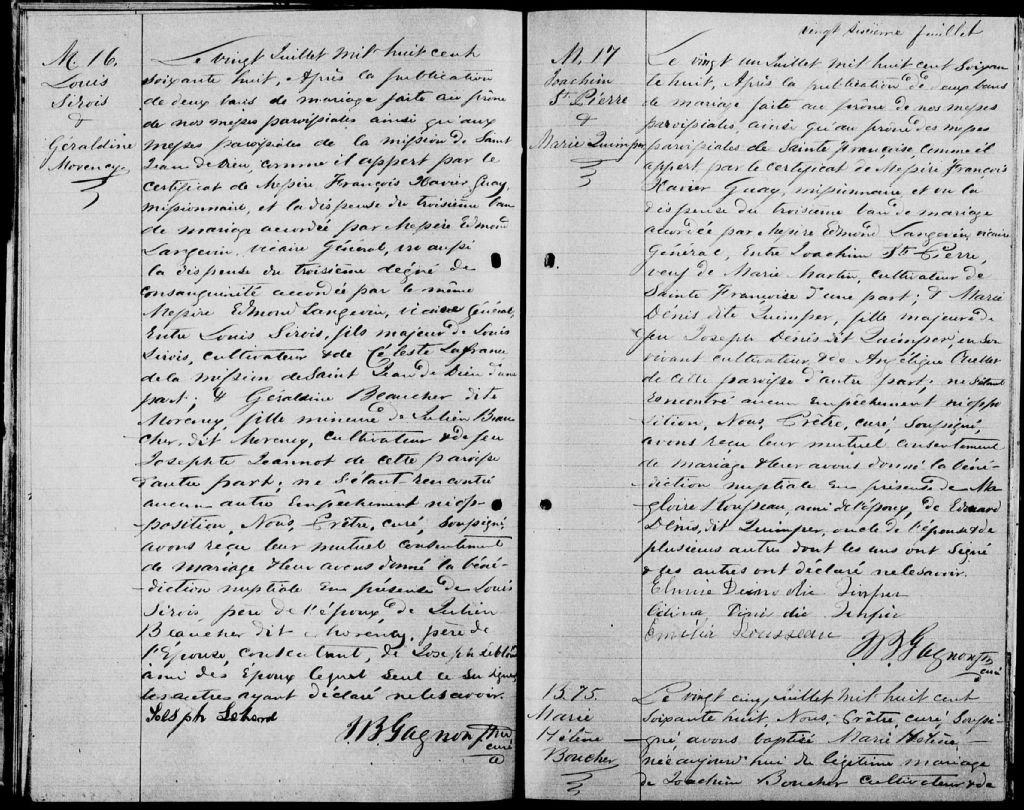 M. 16.
Louis
Sirois
&
Géraldine
Morency
Le vingt Juillet mil huit cent
soixante huit, Après la publication
de deux bans de mariage faite au prône
de nos messes paroissiales ainsi qu'aux
messes paroissiales de la mission de Saint
Jean de Dieu, comme il appert par le
certificat de Messire François Xavier Guay,
missionnaire, et la dispense du troisième ban
de mariage accordée par Messire Edmond
Langevin, vicaire Général, vu aussi
la dispense du troisième dégré de
consanguinité accordée par le même
Messire Edmond Langevin, vicaire Général,
Entre Louis Sirois, fils majeur de Louis
Sirois, cultivateur & de Céleste Lafrance
de la mission de Saint Jean de Dieu d'une
part; & Géraldine Beaucher dite
Morency, fille mineure de Julien Beau
cher, dit Morency, cultivateur & de feu
Josephte Jeannot de cette paroisse
d'autre part; ne s'étant rencontré
aucun autre Empêchement ni op-
position, Nous, Prêtre, curé, Soussigné,
avons reçu leur mutuel consentement
de mariage & leur avons donné la béné-
diction nuptiale en présence de Louis
Sirois, père de l'époux, de Julien
Beaucher dit Morency, père de
l'Epouse, consentant, de Joseph
ami des Epoux lequel seul a su signer
les autres ayant déclaré ne le savoir.
Joseph
J B Gagnon Ptre
curé
vingt sixième feuillet
M. 17
Joachim
St. Pierre
&
Marie Quimper
Le vingt un Juillet mil huit cent Soixan
te huit, Après la publication de deux bans
de mariage faite au prône de nos messes
paroissiales, ainsi qu'au prône des messes
paroissiales de Sainte Françoise, comme il
appert par le certificat de Messire François
Xavier Guay, missionnaire et vu la
dispense du troisième ban de mariage
accordée par Messire Edmond Langevin, vicaire
Général, Entre Joachim St. Pierre,
veuf de Marie Martin, cultivateur de
Sainte Françoise d'une part; & Marie
Denis dite Quimper, fille majeure de
feu Joseph Dénis dit Quimper, en son
vivant cultivateur, & de Angélique Ouellet
de cette paroisse d'autre part; ne s'étant
rencontré aucun empêchement ni oppo
sition, Nous, Prêtre, curé, Soussigné,
avons reçu leur mutuel consentement
de mariage & leur avons donné la béné-
diction nuptiale en présence de Ma
gloire Rousseau, ami de l'époux, de Edouard
Denis, dit Quimper, oncle de l'épouse & de
plusieurs autres dont les uns ont Signé
& les autres ont déclaré ne le savoir.
Emélie Rousseau
J B Gagnon Ptre
curé
B. 75.
Marie
Hélène
Boucher
Le vingt cinq Juillet mil huit cent
Soixante huit, Nous, Prêtre, curé, Soussi-
gné, avons baptisé Marie Hélène
née aujourd'hui du légitime mariage
de Joachim Boucher cultivateur & de